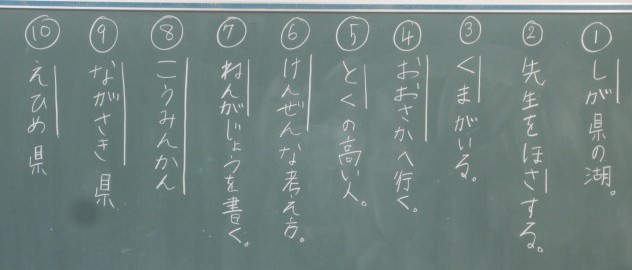 ①しが県の湖。
②先生をほさする。
③くまがいる。
④おおさかへ行く。
⑤とくの高い人。
⑥けんぜんな考え方。
⑦ねんがじょうを書く。
⑧こうみんかん
⑨ながさき県
⑩えひめ県